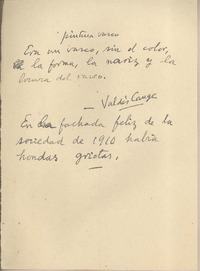 pintura vasco
Era un vasco, sin el color,
la forma, la nariz y la
locura del vasco.
— Valdés Cange
En la fachada feliz de la
sociedad de 1910 había
hondas grietas.